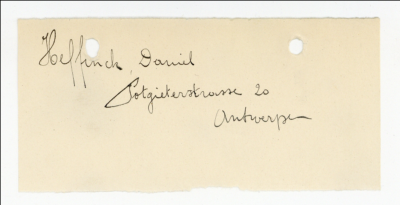 Hoffinck, Daniel
Potgieterstrasse 20
Antwerpen